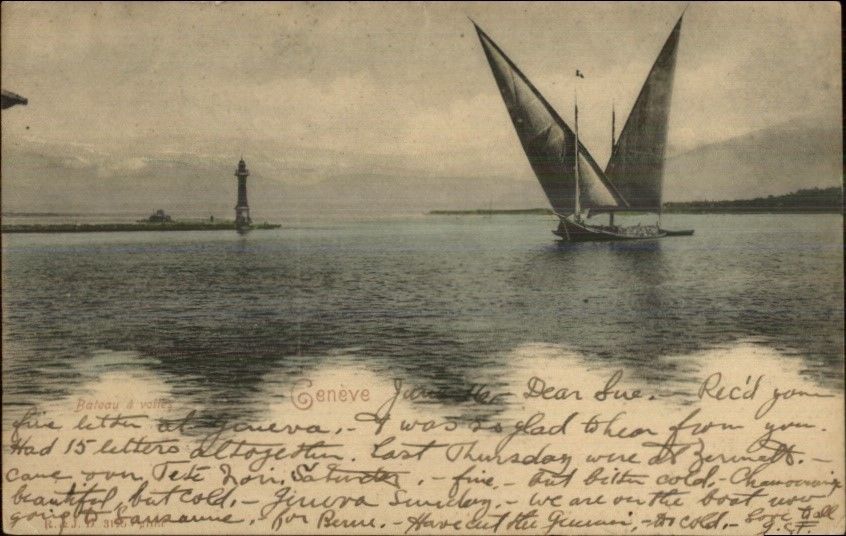 Bateau à voiles
Genève
June Dear Sue. - Rec'd your
fine letter at Geneva. - I was so glad to hear from you.
Had 15 letters altogether. Last Thursday were at Zermatt. -
came over Tete Noir, Saturday. - fine, - but bitter cold. - Chamounix
beautiful, but cold. - Geneva Sunday. We are on the boat now
going to Lausanne, for Berne. - Have cut the Gemmi, - too cold. - Love to all
R. & J. D.